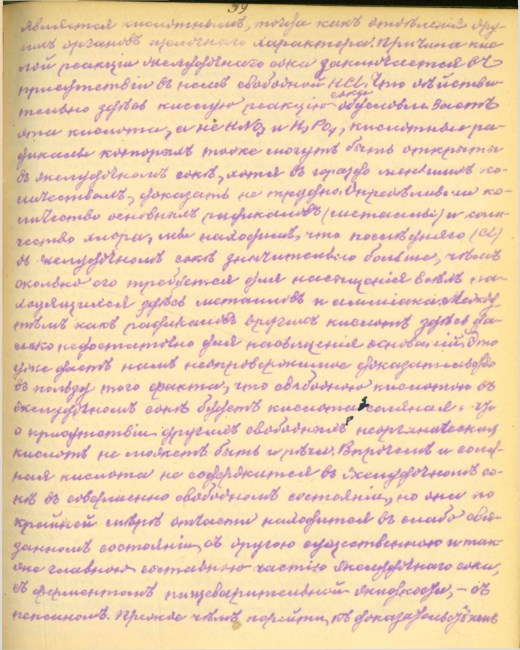 39
является кислотнымъ, тогда какъ отдѣленія дру-
гихъ органовъ щелочного характера. Причина кис-
лой реакціи желудочнаго сока заключается въ
присутствіи въ немъ свободной HCl. Что дѣйстви-
тельно здѣсь кислую реакцію сока обусловливаетъ
эта кислота, а не HNO3 и H3PO4, кислотные ра-
дикалы которыхъ тоже могутъ быть открыты
въ желудочномъ сокѣ, хотя въ гораздо меньшемъ ко-
личествѣ, доказать не трудно. Опредѣливши ко-
личество основныхъ радикаловъ (металловъ) и коли-
чество хлора, мы находимъ, что послѣдняго (Cl)
въ желудочномъ сокѣ значительно больше, чѣмъ
сколько его требуется для насыщенія всѣхъ на-
ходящихся здѣсь металловъ и амміака. Между
тѣмъ какъ радикаловъ другихъ кислотъ здѣсь да-
леко недостаточно для насыщенія основаній. Это
уже даетъ намъ неопровержимое доказательство
въ пользу того факта, что свободною кислотою въ
желудочномъ сокѣ будетъ кислота соляная. Но
о присутствіи другихъ свободныхъ неорганическихъ
кислотъ не можетъ быть и рѣчи. Впрочемъ и соля-
ная кислота не содержится въ желудочномъ со-
кѣ въ совершенно свободномъ состояніи, но она по
крайней мѣрѣ отчасти находится въ слабо свя-
занномъ состояніи, съ другою существенною и так-
же главною составною частію желудочнаго сока,
съ ферментомъ пищеварительной жидкости, – съ
пепсиномъ. Прежде чѣмъ перейти къ доказательствамъ